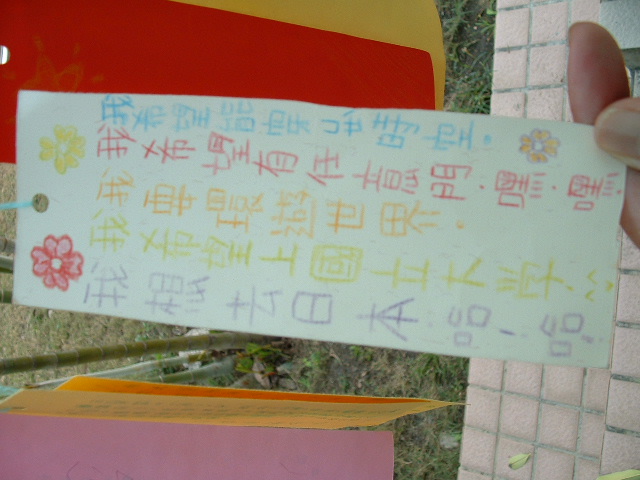 我希望能時空。
我希望有任意門.嘿.嘿.
我要環遊世界.
我希望上國立大學.^^
我想去日本 哈!哈!